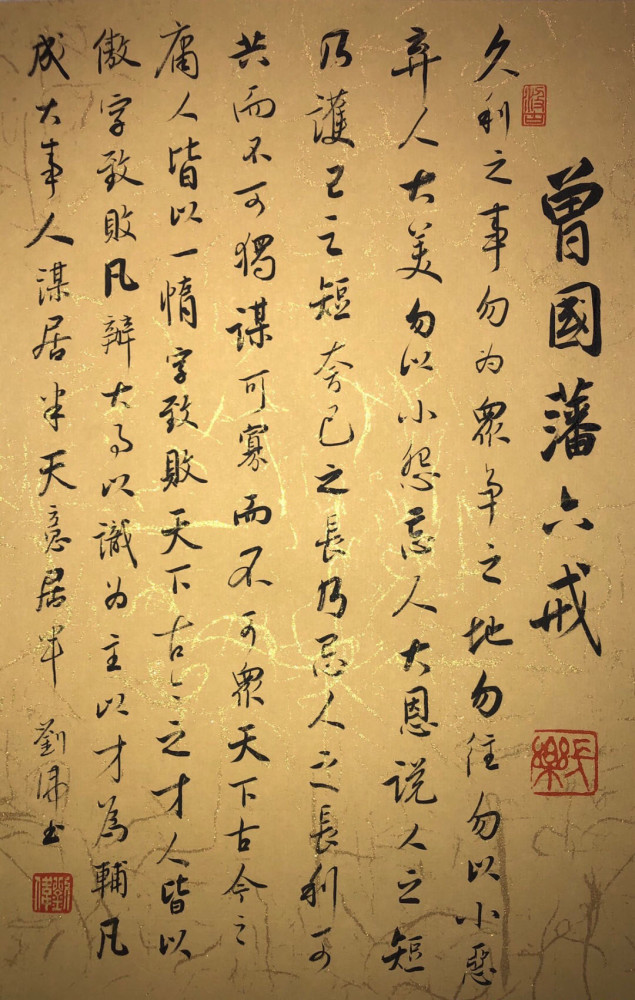 曾國藩六戒
久利之事勿为眾争之地勿往勿以小惡
弃人大美勿以小怨忘人大恩说人之短
乃護己之短夸己之長乃忌人之長利可
共而不可獨謀可寡而不可眾天下古今之
庸人皆以一惰字致敗天下古今之才人皆以
傲字致敗凡辦大事以識为主以才為輔凡
成大事人謀居半天意居半 劉偉书
劉偉